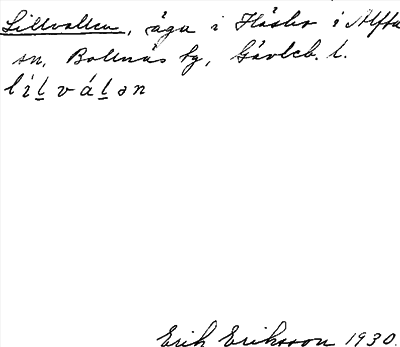 Lillvallen, äga i Hässbo i Alfta
sn, Bollnäs tg, Gävleb. l.
lílválən
Erik Eriksson 1930.